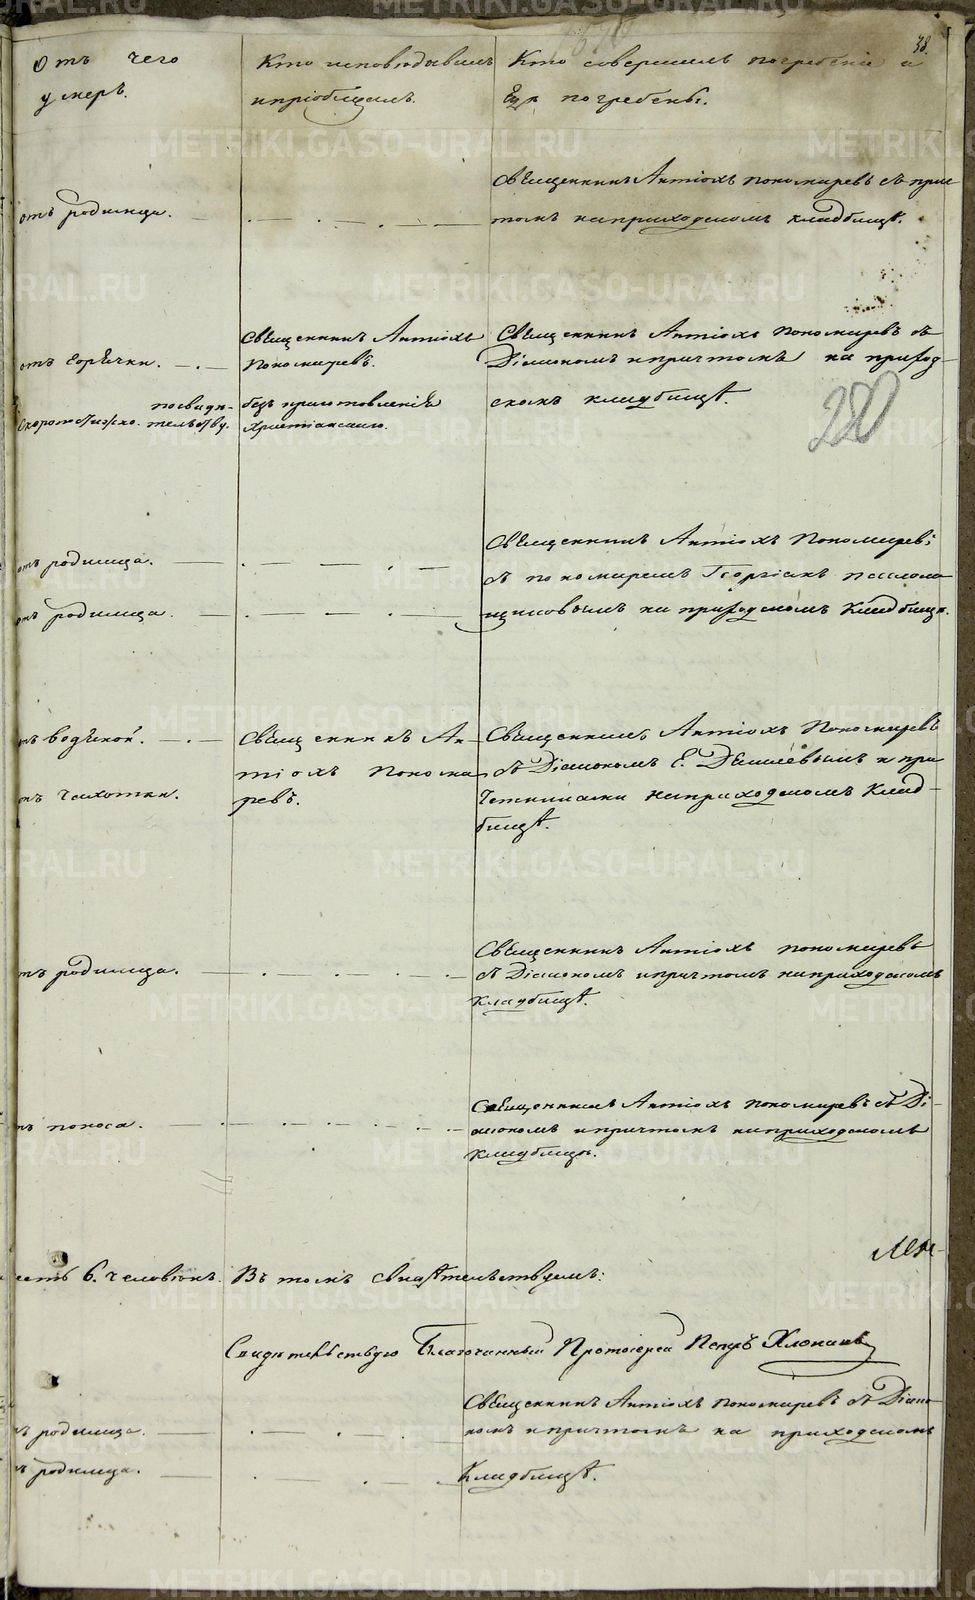 38.
Отъ чего
умеръ.
Кто исповѣдывалъ
и пріобщалъ.
Кто совершалъ погребеніе и
гдѣ погребены.
отъ родимца.
Священникъ Антіохъ Пономаревъ съ прич-
томъ на приходскомъ кладбищѣ.
отъ горячки.
Священникъ Антіохъ
Пономаревъ.
Священникъ Антіохъ Пономаревъ съ
Діакономъ и причтомъ на приход-
скомъ кладбищѣ.
Скоропостижно. по свидѣ-
тельству.
безъ приготовленія
Христіанскаго.
280
отъ родимца.
отъ родимца.
Священникъ Антіохъ Пономаревъ
съ пономаремъ Георгіемъ
на приходскомъ кладбищѣ.
отъ водяной.
отъ чахотки.
Священникъ Ан-
тіохъ Понома-
ревъ.
Священникъ Антіохъ Пономаревъ
съ Діакономъ Е. и при-
четниками на приходскомъ клад-
бищѣ.
отъ родимца.
Священникъ Антіохъ Пономаревъ
съ Діакономъ и причтомъ на приходскомъ
кладбищѣ.
отъ поноса.
Священникъ Антіохъ Пономаревъ съ Ді-
акономъ и причтомъ на приходскомъ
кладбищѣ.
6. человѣкъ. Въ томъ свидѣтельствуемъ:
Свидѣтельствую Благочинный Протоіерей Петръ Хлопинъ
отъ родимца.
отъ родимца.
Священникъ Антіохъ Пономаревъ съ Діако-
номъ и причтомъ на приходскомъ
кладбищѣ.
METRIKI.GASO-URAL.RU